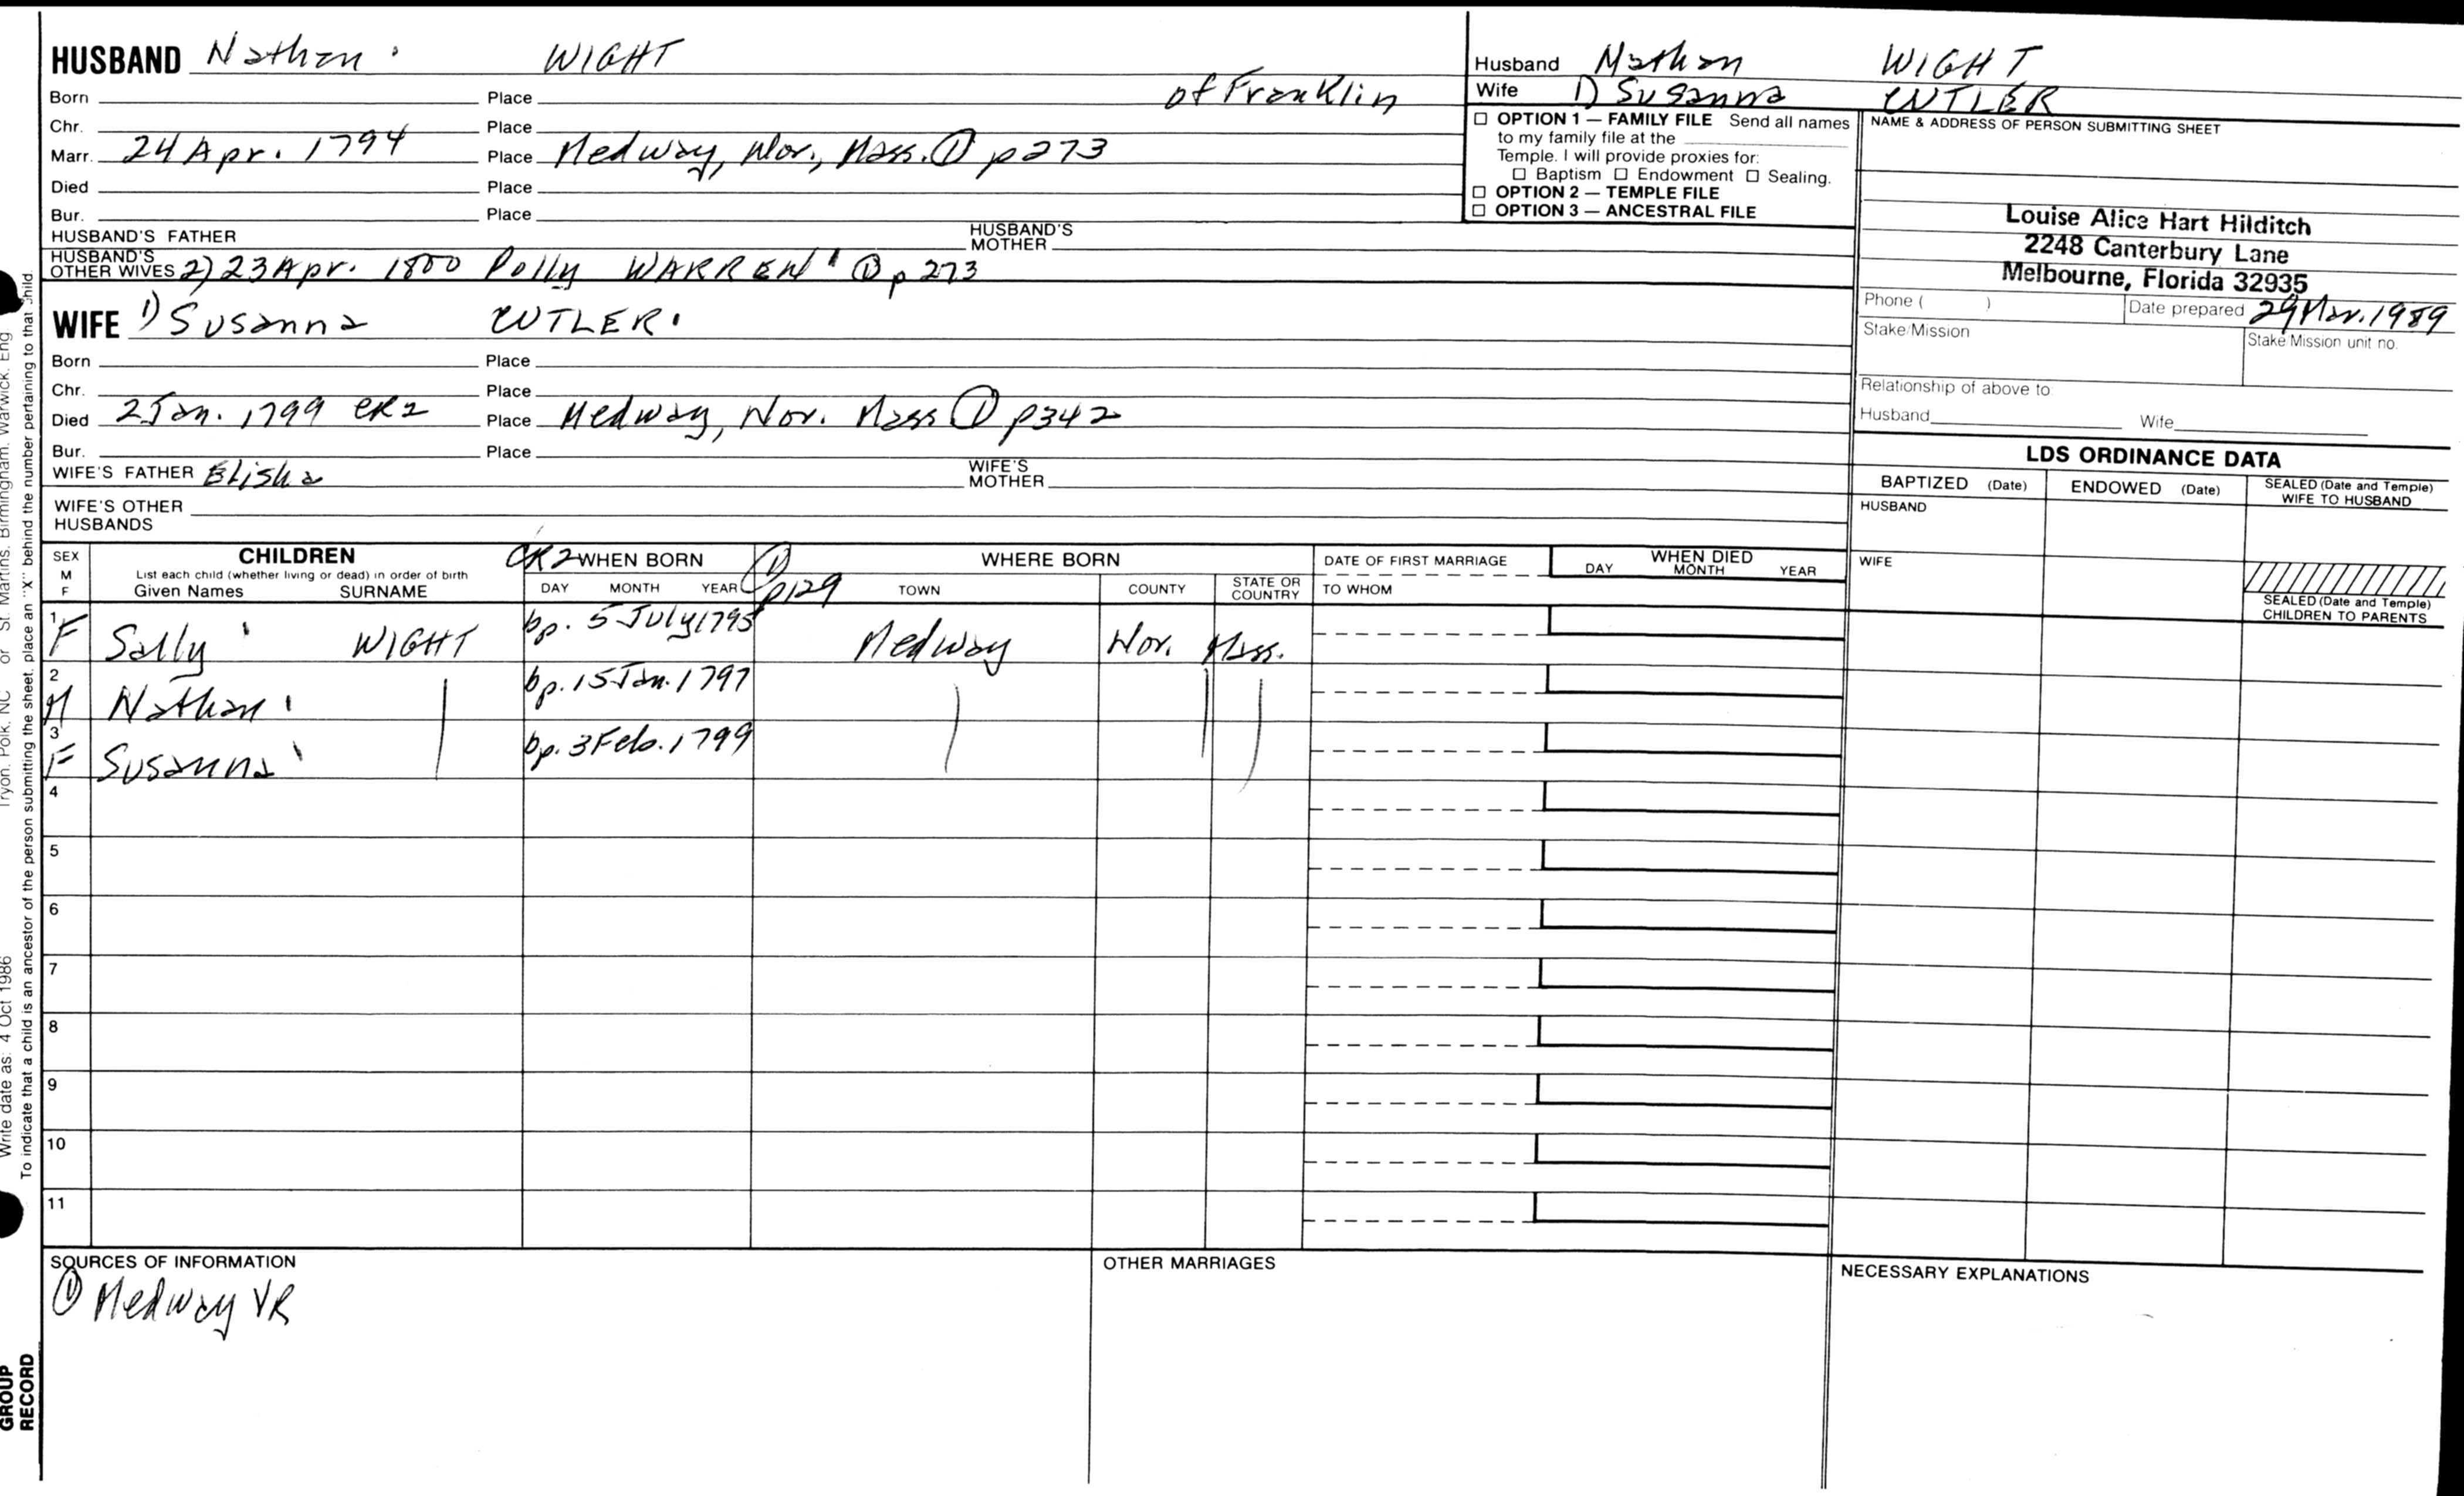 HUSBAND Nathan WIGHT
of Franklin
Born Place
Chr. Place
Marr. 24 Apr. 1794 Place Medway, Nor., Mass. ① p273
Died Place
Bur. Place
HUSBAND'S FATHER HUSBAND'S MOTHER
HUSBAND'S OTHER WIVES 2) 23 Apr. 1800 Polly WARREN ① p273
WIFE 1) Susanna CUTLER
Born Place
Chr. Place
Died 2 Jan. 1799 CR2 Place Medway, Nor. Mass ① p342
Bur. Place
WIFE'S FATHER Elisha WIFE'S MOTHER
WIFE'S OTHER HUSBANDS
Husband Nathan WIGHT
Wife 1) Susanna CUTLER
☐ OPTION 1 — FAMILY FILE Send all names
to my family file at the
Temple. I will provide proxies for:
☐ Baptism ☐ Endowment ☐ Sealing.
☐ OPTION 2 — TEMPLE FILE
☐ OPTION 3 — ANCESTRAL FILE
NAME & ADDRESS OF PERSON SUBMITTING SHEET
Louise Alice Hart Hilditch
2248 Canterbury Lane
Melbourne, Florida 32935
Phone ( ) Date prepared 29 Mar. 1989
Stake/Mission Stake Mission unit no.
Relationship of above to
Husband Wife
LDS ORDINANCE DATA
BAPTIZED (Date) ENDOWED (Date) SEALED (Date and Temple) WIFE TO HUSBAND
HUSBAND
WIFE
SEALED (Date and Temple)
CHILDREN TO PARENTS
SEX M F
CHILDREN
List each child (whether living or dead) in order of birth
Given Names SURNAME
CR2 WHEN BORN ① p129
DAY MONTH YEAR
WHERE BORN
TOWN COUNTY STATE OR COUNTRY
DATE OF FIRST MARRIAGE
TO WHOM
WHEN DIED
DAY MONTH YEAR
1 F Sally WIGHT bp. 5 July 1795 Medway Nor. Mass.
2 M Nathan bp. 15 Jan. 1797
3 F Susanna bp. 3 Feb. 1799
4
5
6
7
8
9
10
11
SOURCES OF INFORMATION
① Medway VR
OTHER MARRIAGES
NECESSARY EXPLANATIONS
Write date as: 4 Oct 1986 Tryon, Polk, NC or St. Martins, Birmingham, Warwick, Eng
To indicate that a child is an ancestor of the person submitting the sheet, place an "X" behind the number pertaining to that child
GROUP
RECORD